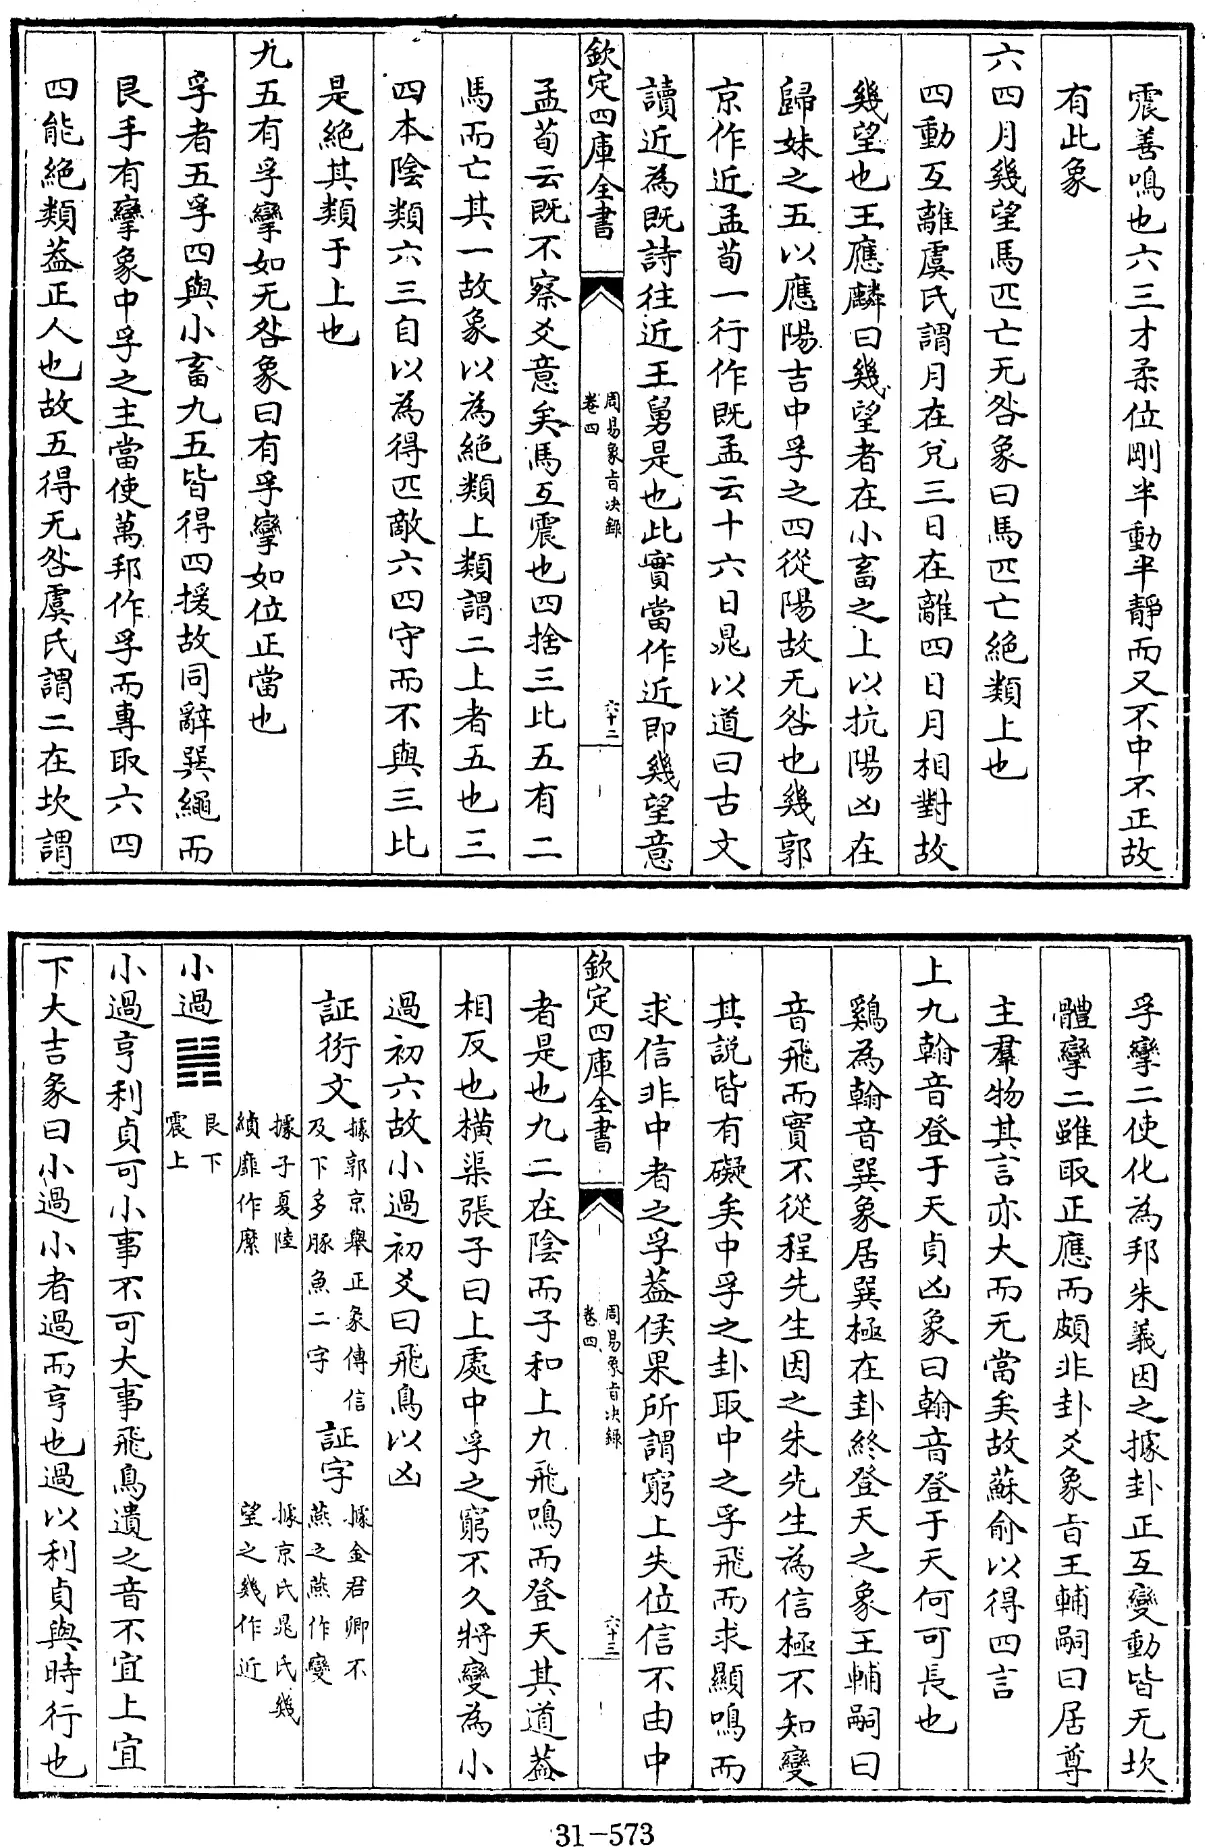 震善鳴也六三才柔位剛半動半靜而又不中不正故
有此象
六四月幾望馬匹亡无咎象曰馬匹亡絶類上也
四動互離虞氏謂月在兌三日在離四日月相對故
幾望也王應麟曰幾望者在小畜之上以抗陽凶在
歸妹之五以應陽吉中孚之四從陽故无咎也幾郭
京作近孟荀一行作既孟云十六日晁以道曰古文
讀近為既詩往近王舅是也此實當作近即幾望意
欽定四庫全書
周易象旨决錄
卷四
六十二
孟荀云既不察爻意矣馬互震也四捨三比五有二
馬而亡其一故象以為絶類上類謂二上者五也三
四本陰類六三自以為得匹敵六四守而不與三比
是絶其類于上也
九五有孚攣如无咎象曰有孚攣如位正當也
孚者五孚四與小畜九五皆得四援故同辭巽繩而
艮手有攣象中孚之主當使萬邦作孚而專取六四
四能絶類葢正人也故五得无咎虞氏謂二在坎謂
孚攣二使化為邦朱義因之據卦正互變動皆无坎
體攣二雖取正應而頗非卦爻象旨王輔嗣曰居尊
主羣物其言亦大而无當矣故蘇俞以得四言
上九翰音登于天貞凶象曰翰音登于天何可長也
鷄為翰音巽象居巽極在卦終登天之象王輔嗣曰
音飛而實不從程先生因之朱先生為信極不知變
其説皆有礙矣中孚之卦取中之孚飛而求顯鳴而
求信非中者之孚葢侯果所謂窮上失位信不由中
欽定四庫全書
周易象旨决錄
卷四
六十三
者是也九二在陰而子和上九飛鳴而登天其道葢
相反也橫渠張子曰上處中孚之窮不久將變為小
過初六故小過初爻曰飛鳥以凶
証衍文 據郭京舉正彖傳信
及下多豚魚二字
証字 據金君卿不
燕之燕作變
據子夏陸
績靡作縻
據京氏晁氏幾
望之幾作近
小過 艮下
震上
小過亨利貞可小事不可大事飛鳥遺之音不宜上宜
下大吉彖曰小過小者過而亨也過以利貞與時行也
31-573